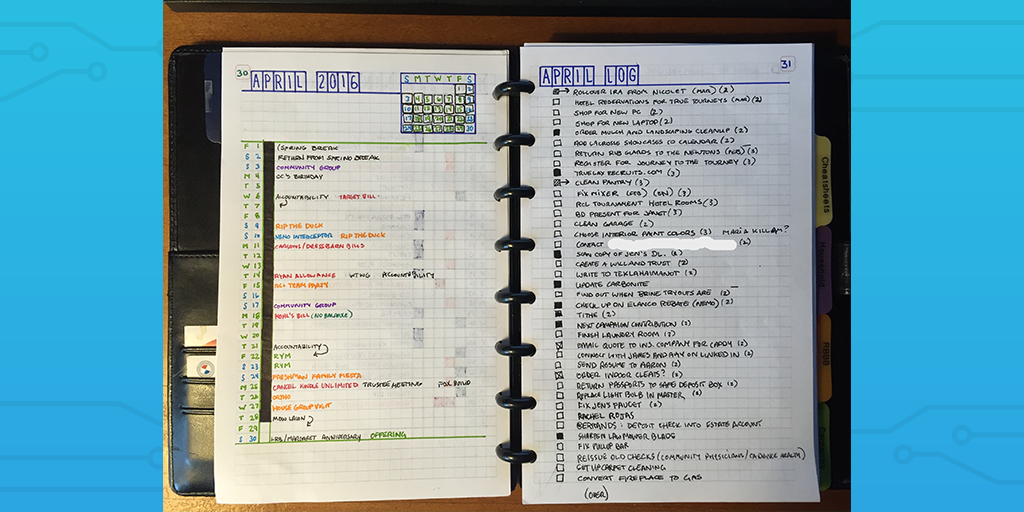 30
APRIL 2016
S M T W T F S
F 1 (SPRING BREAK
S 2 RETURN FROM SPRING BREAK
S 3 COMMUNITY GROUP
M 4 CC'S BIRTHDAY
T 5
W 6 ACCOUNTABILITY TARGET BILL
T 7
F 8
S 9 RIP THE DUCK
S 10 NEMO INTERCEPTOR RIP THE DUCK
M 11 CARSONS/DRESSBARN BILLS
T 12
W 13
T 14 RYAN ALLOWANCE WTWG ACCOUNTABILITY
F 15 RCL TEAM PARTY
S 16
S 17 COMMUNITY GROUP
M 18 KOHL'S BILL (NO BALANCE)
T 19
W 20
T 21 ACCOUNTABILITY
F 22 RYM
S 23 RYM
S 24 FRESHMAN FAMILY FIESTA
M 25 CANCEL KINDLE UNLIMITED TRUSTEE MEETING FOX BAND
T 26 ORTHO
W 27 HOUSE GROUP VISIT
T 28 MOW LAWN
F 29
S 30 MARGARET ANNIVERSARY OFFERING
31
APRIL LOG
ROLLOVER IRA FROM NICOLET (MAR) (2)
HOTEL RESERVATIONS FOR TRUE JOURNEYS (MAR) (2)
SHOP FOR NEW PC (2)
SHOP FOR NEW LAPTOP (2)
ORDER MULCH AND LANDSCAPING CLEANUP (2)
ADD LACROSSE SHOWCASES TO CALENDAR (2)
RETURN RIB GUARDS TO THE NEWTONS (FEB) (3)
REGISTER FOR JOURNEY TO THE TOURNEY (3)
TRUELAX RECRUITS.COM (3)
CLEAN PANTRY (3)
FIX MIXER (FEB) (JAN) (3)
RCL TOURNAMENT HOTEL ROOMS (3)
BD PRESENT FOR JANET (3)
CLEAN GARAGE (2)
CHOOSE INTERIOR PAINT COLORS (3) MARIA KILLAM?
CONTACT (2)
SCAN COPY OF JEN'S DL. (2)
CREATE A WILL AND TRUST (2)
WRITE TO TEKLAHAIMANOT (2)
UPDATE CARBONITE
FIND OUT WHEN BRINE TRYOUTS ARE (2)
CHECK UP ON ELANCO REBATE (NEMO) (2)
TITHE (2)
NEXT CAMPAIGN CONTRIBUTION (2)
FINISH LAUNDRY ROOM (2)
EMAIL QUOTE TO INS. COMPANY FOR CADDY (2)
CONNECT WITH JAMES AND AMY ON LINKED IN (2)
SEND RESUME TO AARON (2)
ORDER INDOOR CLEATS? (2)
RETURN PASSPORTS TO SAFE DEPOSIT BOX (2)
REPLACE LIGHT BULB IN MASTER (2)
FIX JEN'S FAUCET (2)
RACHEL ROJAS
DEPOSIT CHECK INTO ESTATE ACCOUNT
SHARPEN LAWNMOWER BLADE
FIX PULLUP BAR
REISSUE OLD CHECKS (COMMUNITY PHYSICIANS/CADENCE HEALTH)
SET UP CARPET CLEANING
CONVERT FIREPLACE TO GAS
(OVER)
Cheatsheets